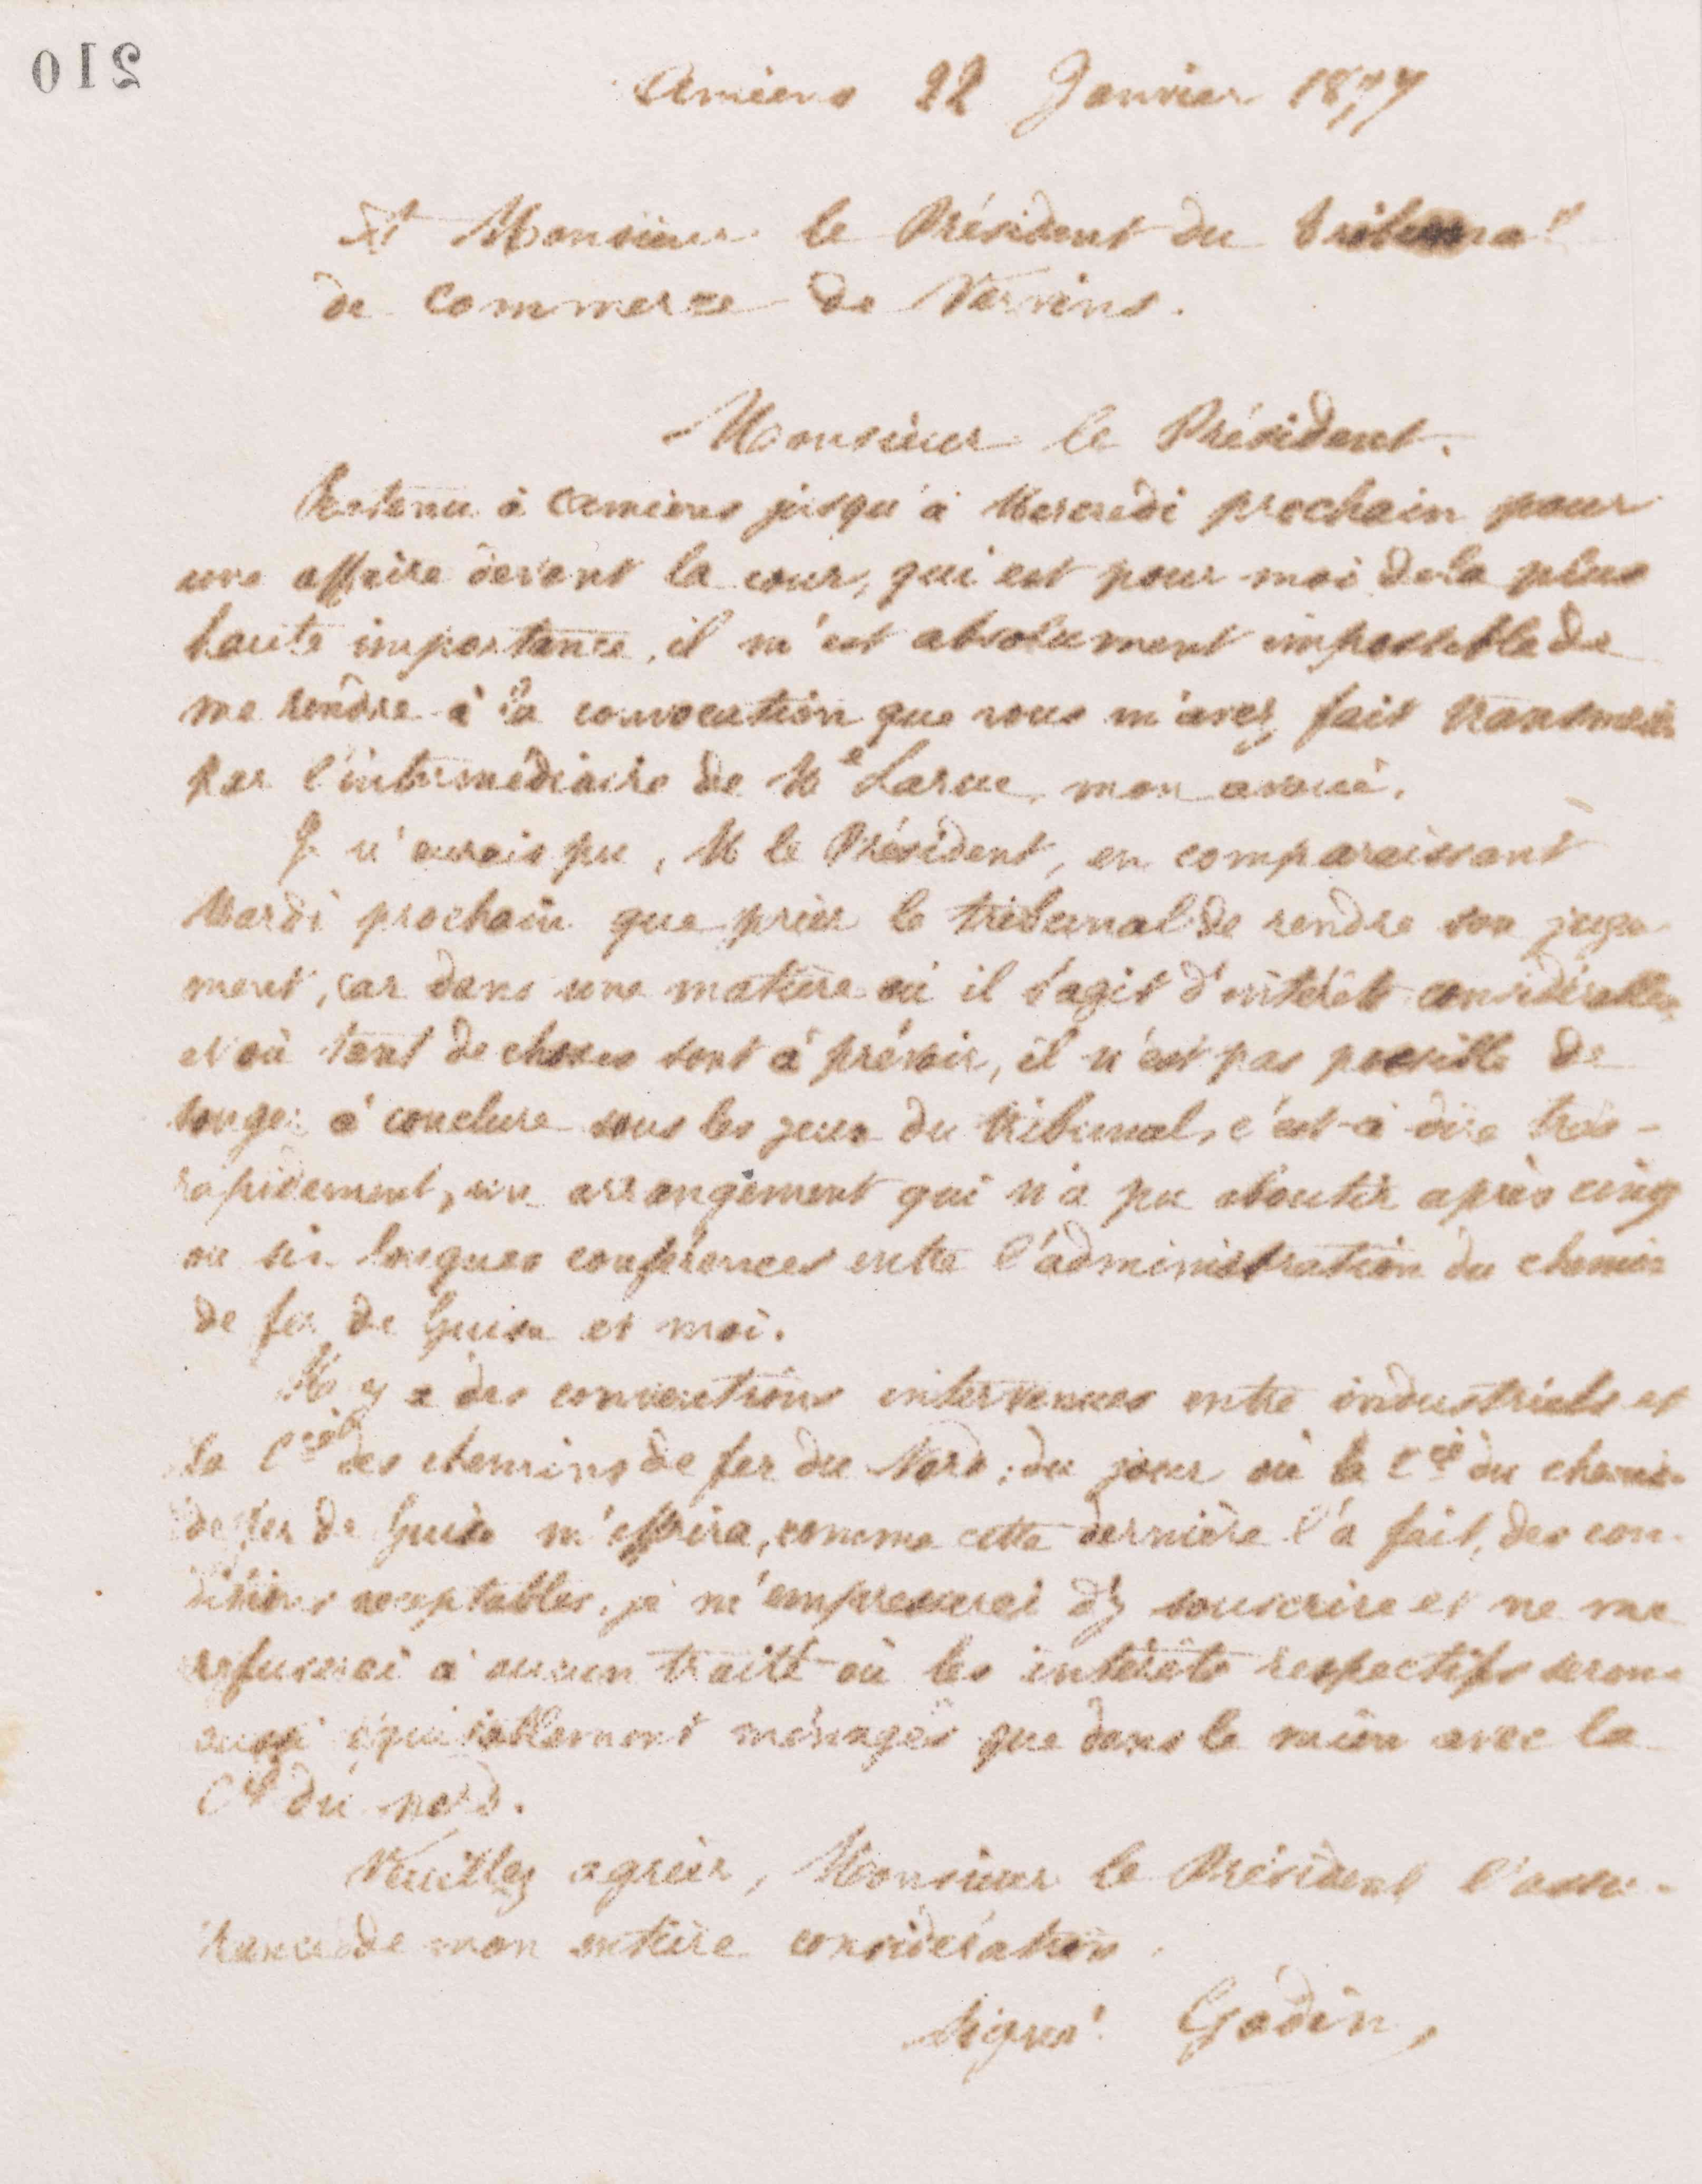 210
Amiens 22 Janvier 1877
A Monsieur le Président du tribunal
de commerce de Vervins.
Monsieur le Président.
Retenu à Amiens jusqu'à Mercredi prochain pour
une affaire devant la cour, qui est pour moi de la plus
haute importance, il m'est absolument impossible de
me rendre à la convocation que vous m'avez fait transmettre
par l'intermédiaire de Me Larue, mon avoué.
Je n'aurais pu, M le Président, en comparaissant
Mardi prochain que prier le tribunal de rendre son juge-
ment, car dans une matière où il s'agit d'intérêts considérables
et où tant de choses sont à prévoir, il n'est pas possible de
songer à conclure sous les yeux du tribunal, c'est-à-dire très-
rapidement, un arrangement qui n'a pu aboutir après cinq
ou six longues conférences entre l'administration du chemin
de fer de Guise et moi.
Il y a des conventions intervenues entre industriels et
la Cie des chemins de fer du Nord; du jour où la Cie du chemin
de fer de Guise m'offrira, comme cette dernière l'a fait, des con-
ditions acceptables, je m'empresserai d'y souscrire et ne me
refuserai à aucun traité où les intérêts respectifs seront
aussi équitablement ménagés que dans le mien avec la
Cie du nord.
Veuillez agréer, Monsieur le Président l'assu-
rance de mon entière considération.
Signé: Godin,